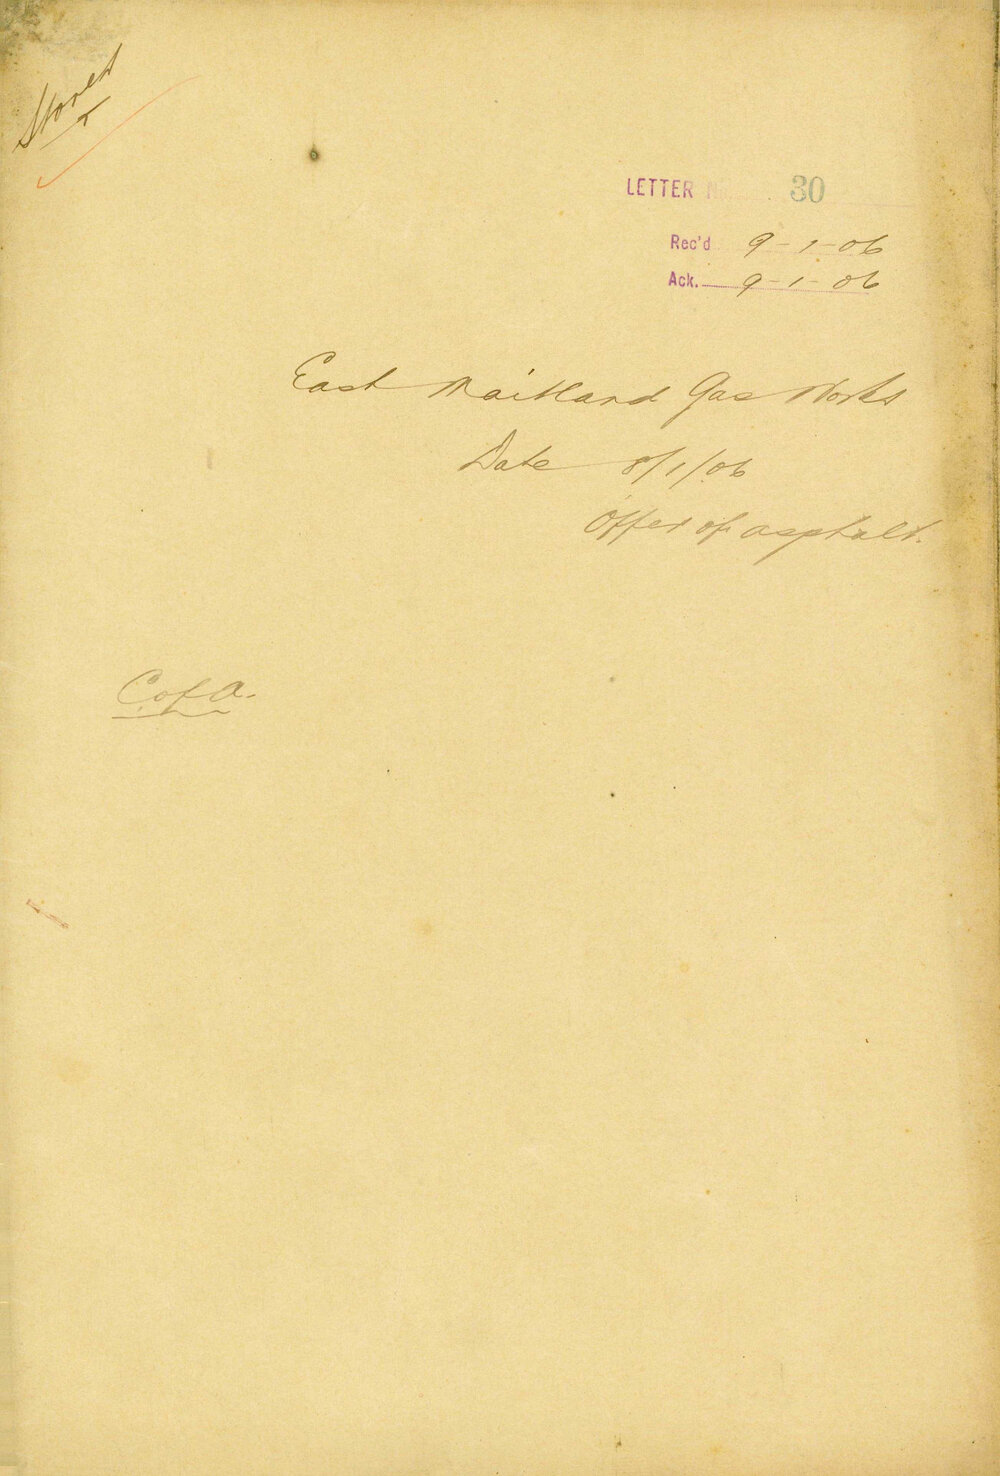 Stores
LETTER No. 30
Rec'd 9-1-06
Ack. 9-1-06
East Maitland Gas Works
Date 8/1/06
Offer of asphalt.
C of A.